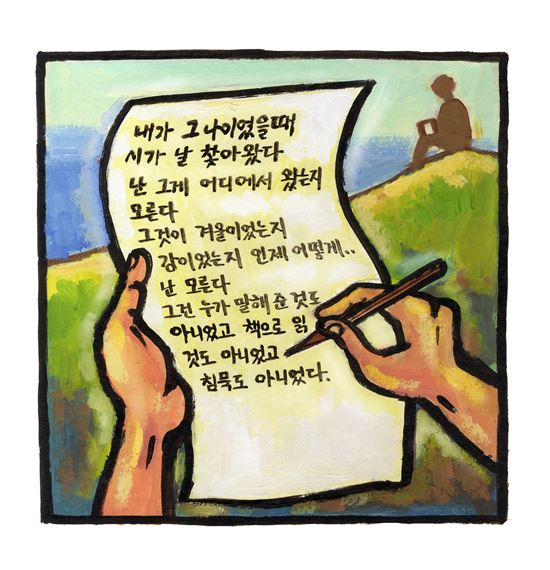 내가 그 나이였을때
시가 날 찾아왔다
난 그게 어디에서 왔는지
모른다
그것이 겨울이었는지
강이었는지 언제 어떻게..
난 모른다
그건 누가 말해 준 것도
아니었고 책으로 읽
것도 아니었고
침묵도 아니었다.